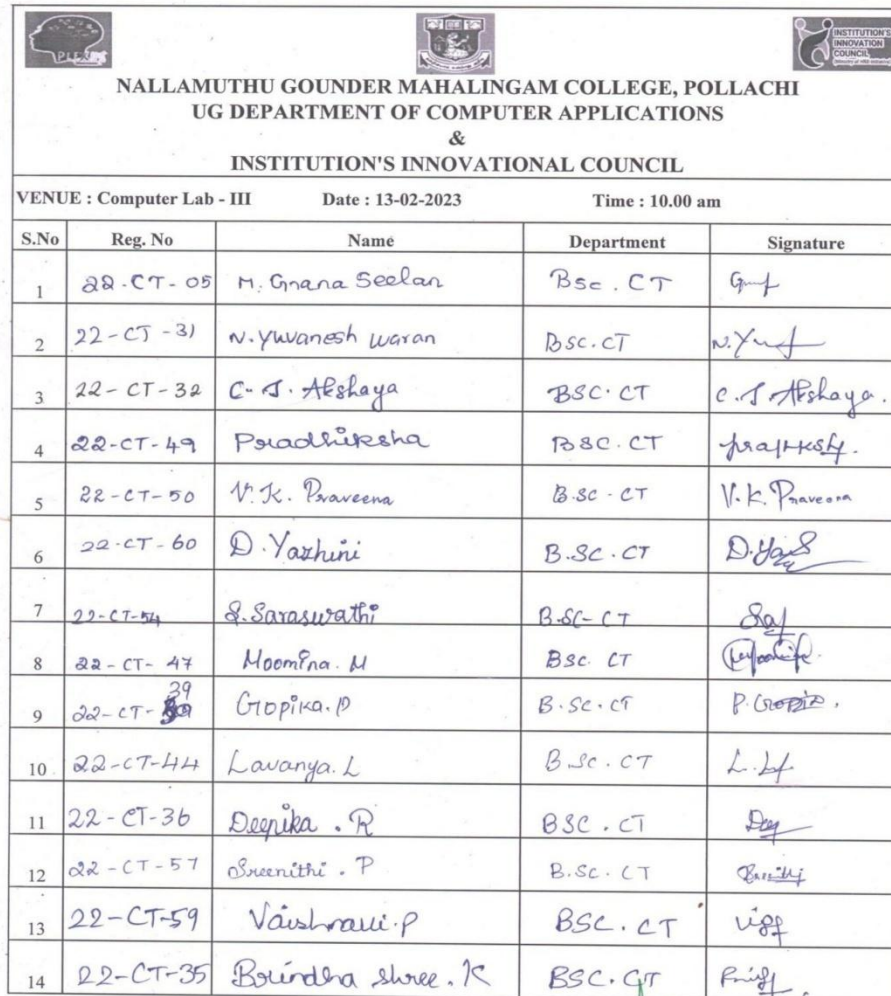 PLEXUS
INSTITUTION'S
INNOVATION
COUNCIL
NALLAMUTHU GOUNDER MAHALINGAM COLLEGE, POLLACHI
UG DEPARTMENT OF COMPUTER APPLICATIONS
&
INSTITUTION'S INNOVATIONAL COUNCIL
VENUE : Computer Lab - III Date : 13-02-2023 Time : 10.00 am
S.No Reg. No Name Department Signature
1 22-CT-05 M. Gnana Seelan Bsc. CT
2 22-CT-31 N. Yuvanesh waran BSC. CT
3 22-CT-32 C. J. Akshaya BSC. CT C. J. Akshaya.
4 22-CT-49 Pradhiksha BSC. CT
5 22-CT-50 V. K. Praveena B.SC - CT V. K. Praveena
6 22-CT-60 D. Yazhini B.SC. CT
7 22-CT-54 S. Saraswathi B.SC- CT
8 22-CT-47 Moomina. M BSC. CT
9 22-CT-39 Gopika. P B.SC. CT
10 22-CT-44 Lavanya. L B.SC. CT
11 22-CT-36 Deepika. R BSC. CT
12 22-CT-57 Sreenithi. P B.SC. CT
13 22-CT-59 Vaishnavi. P BSC. CT
14 22-CT-35 Brindha shree. K BSC. CT